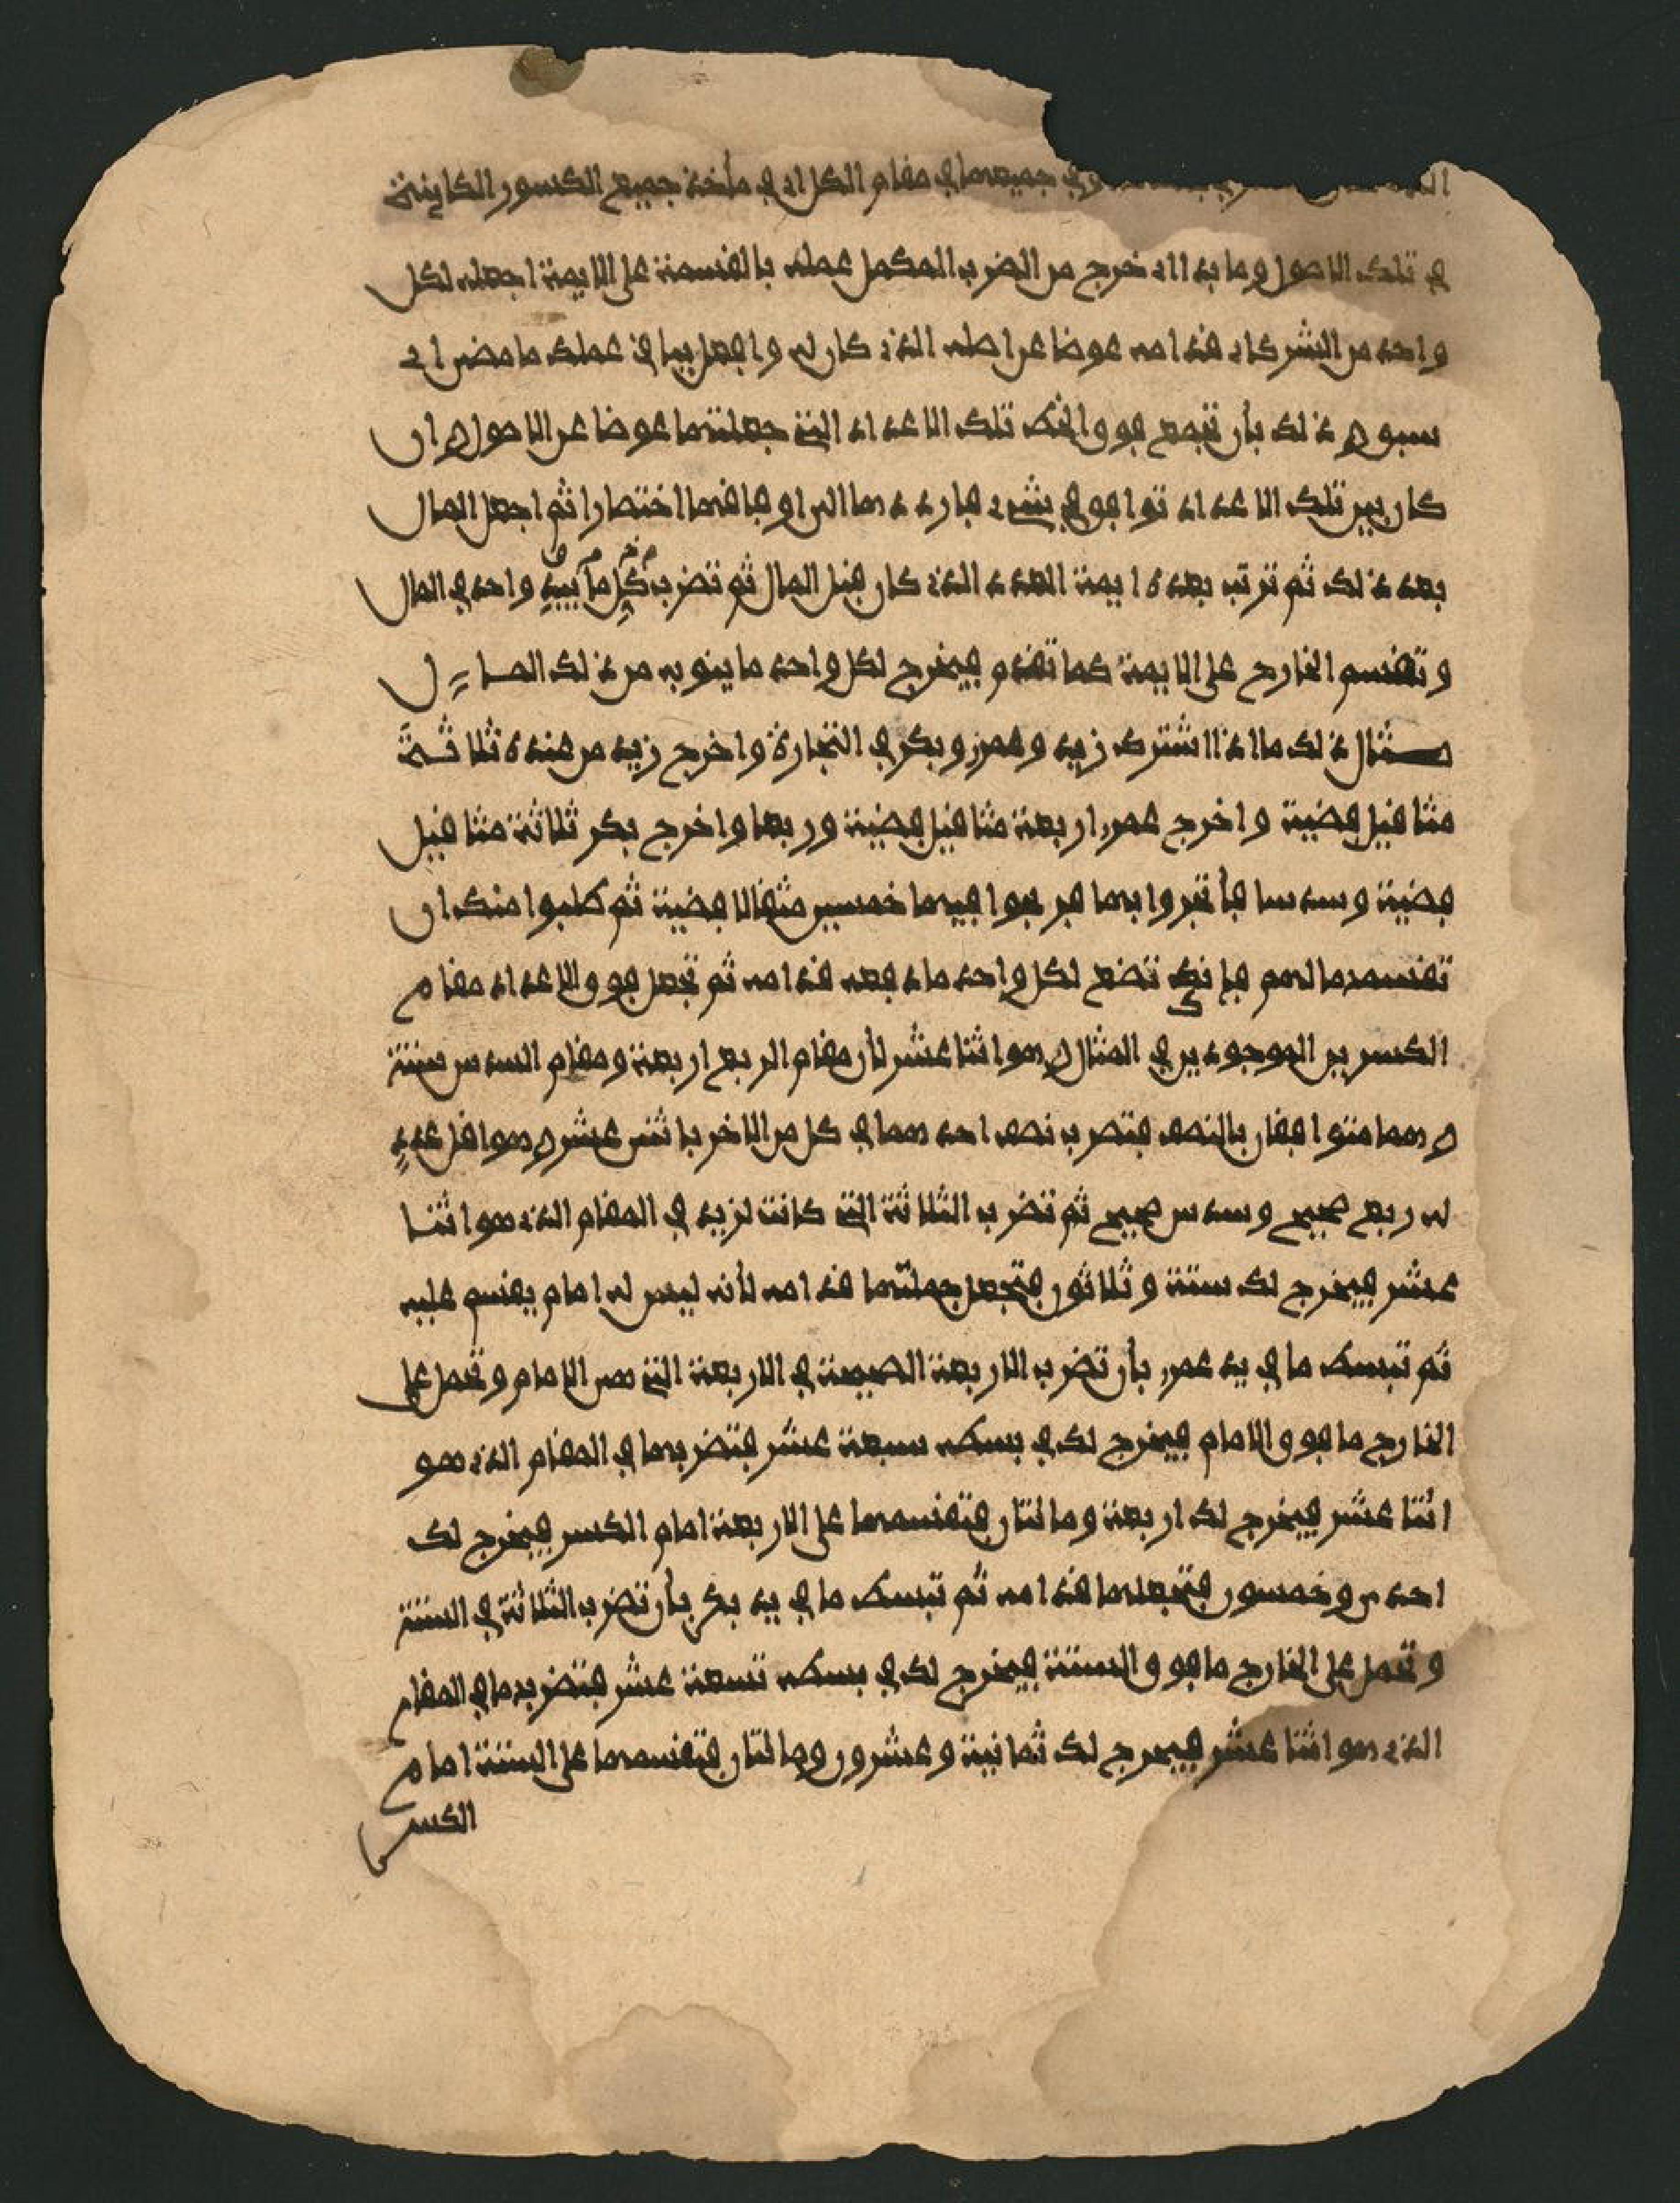 في جميعها في مقام الكل اي في مأخذ جميع الكسور الكاينة
في تلك الاصول وما به اذا خرج من الضرب المكمل عمله بالقسمة على الايمة اجعله لكل
واحد من الشركاء قدامه عوضا عن اصله الذي كان له وافعل بباقي عملك ما مضى اي
سبق وذلك بأن تجمع فوق الخط تلك الاعداد التي جعلتها عوضا عن الاصول وان
كان بين تلك الاعداد توافق في شيء فارددها الى اوفاقها اختصارا ثم اجعل المال
بعد ذلك ثم ترتب بعده ايمة العدد الذي كان قبل المال ثم تضرب كل ما بيد واحد في المال
وتقسم الخارج على الايمة كما تقدم فيخرج لكل واحد ما ينوبه من ذلك المال
مثال ذلك ما اذا اشترك زيد وعمرو وبكر في التجارة واخرج زيد من عنده ثلاثة
مثاقيل فضية واخرج عمرو اربعة مثاقيل فضية وربعا واخرج بكر ثلاثة مثاقيل
فضية وسدسا فأتجروا بها فربحوا فيها خمسين مثقالا فضية ثم طلبوا منك ان
تقسمها لهم فإنك تضع لكل واحد ما دفعه قدامه ثم تجعل فوق الاعداد مقام
الكسرين الموجودين في المثال وهو اثنا عشر لأن مقام الربع اربعة ومقام السدس ستة
وهما متوافقان بالنصف فتضرب نصف احدهما في كل من الاخر باثنى عشر وهو اقل عدد
له ربع صحيح وسدس صحيح ثم تضرب الثلاثة التي كانت لزيد في المقام الذي هو اثنا
عشر فيخرج لك ستة وثلاثون فتجعل جملتها قدامه لأنه ليس له امام يقسم عليه
ثم تبسط ما في يد عمرو بأن تضرب الاربعة الصحيحة في الاربعة التي هي الامام وتحمل على
الخارج ما فوق الامام فيخرج لك في بسطه سبعة عشر فتضربها في المقام الذي هو
اثنا عشر فيخرج لك اربعة ومائتان فتقسمها على الاربعة امام الكسر فيخرج لك
احدى وخمسون فتجعلها قدامه ثم تبسط ما في يد بكر بأن تضرب الثلاثة في الستة
وتحمل على الخارج ما فوق الستة فيخرج لك في بسطه تسعة عشر فتضربها في المقام
الذي هو اثنا عشر فيخرج لك ثمانية وعشرون ومائتان فتقسمها على الستة امام
الكسر